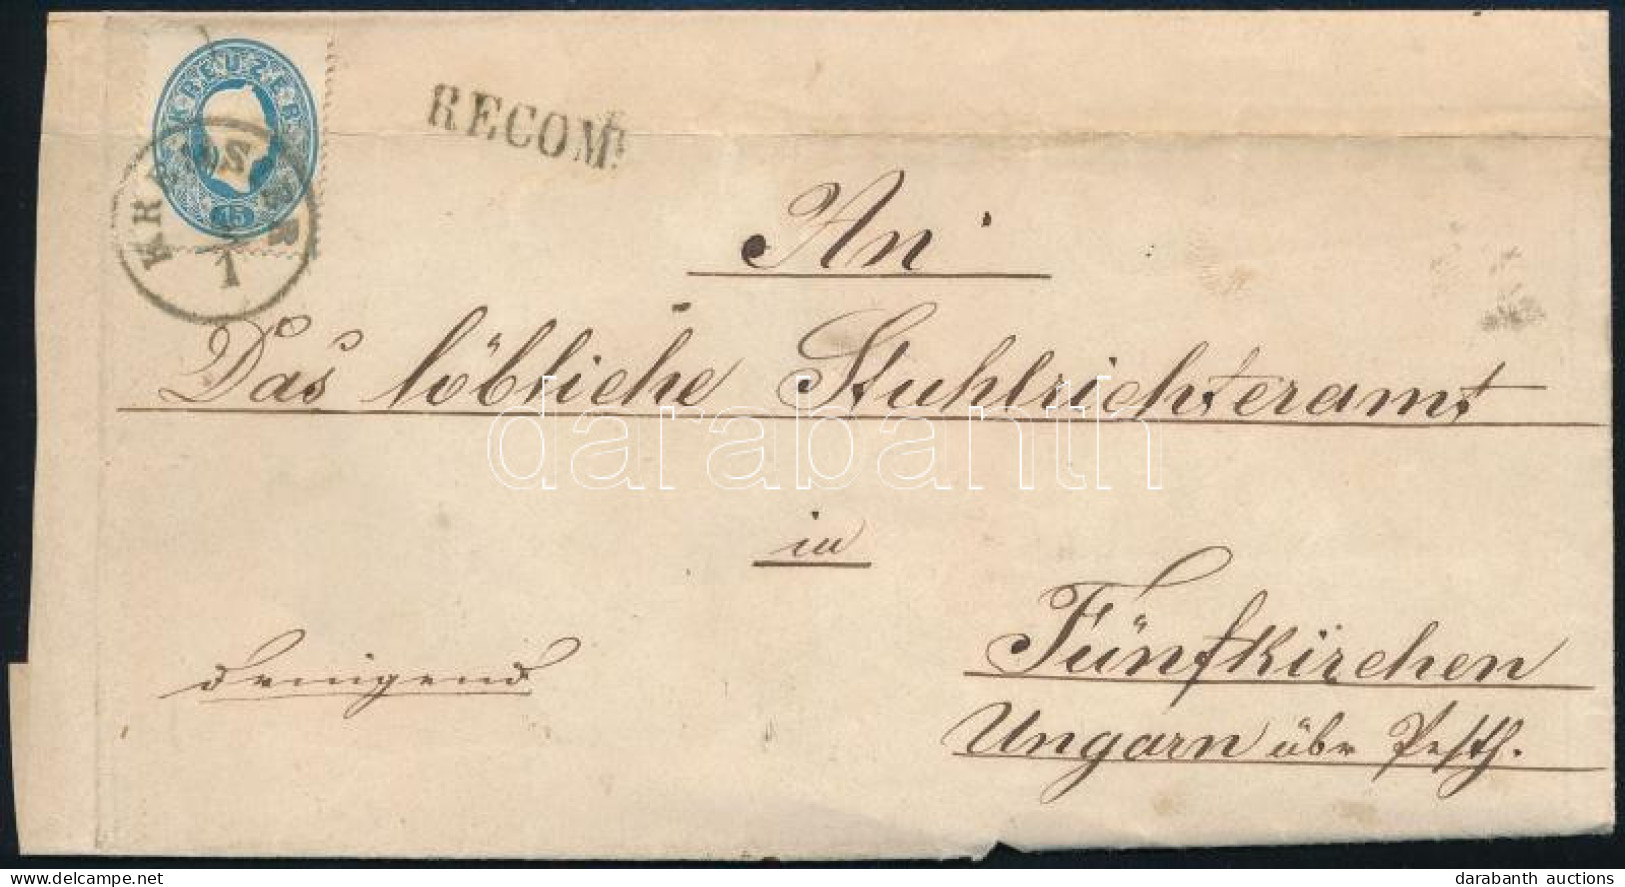 KREUZER
15
RECOM:
An
Das löbliche Stuhlrichteramt
in
Fünfkirchen
dringend
Ungarn über Pesth.
darabanth
darabanth auctions
www.delcampe.net